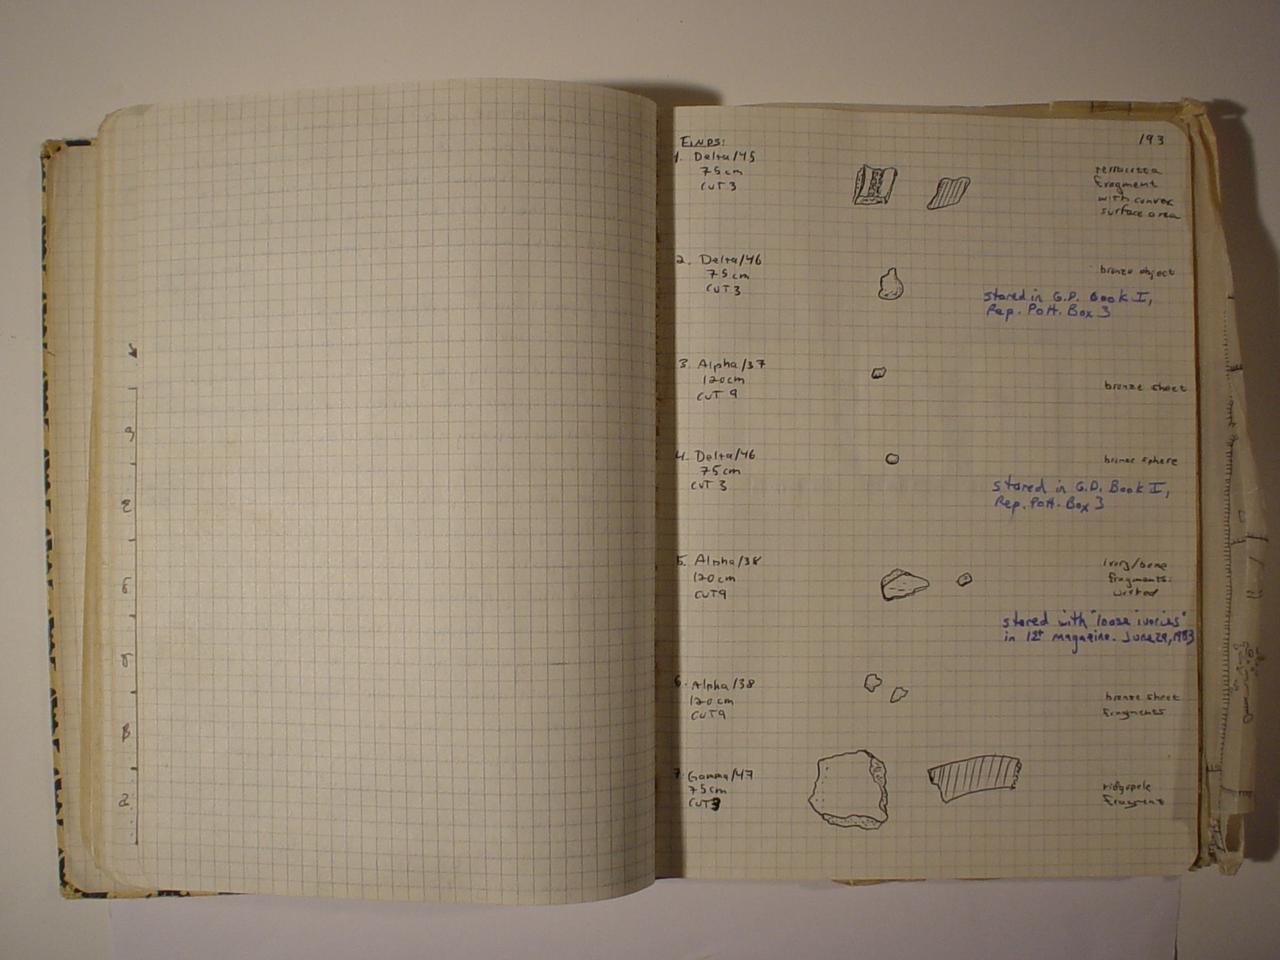 193
FINDS:
1. Delta/45
75cm
CUT 3
terracotta
fragment
with convex
surface area
2. Delta/46
75cm
CUT 3
bronze object
stored in G.D. Book I,
Rep. Pott. Box 3
3. Alpha/37
120cm
CUT 9
bronze sheet
4. Delta/46
75cm
CUT 3
bronze sphere
stored in G.D. Book I,
Rep. Pott. Box 3
5. Alpha/38
120cm
CUT 9
ivory/bone
fragments:
stored with "loose ivories"
in 1st magazine. June 29, 1983
6. Alpha/38
120cm
CUT 9
bronze sheet
fragments
7. Gamma/47
75cm
CUT 3
ridgepole
fragment